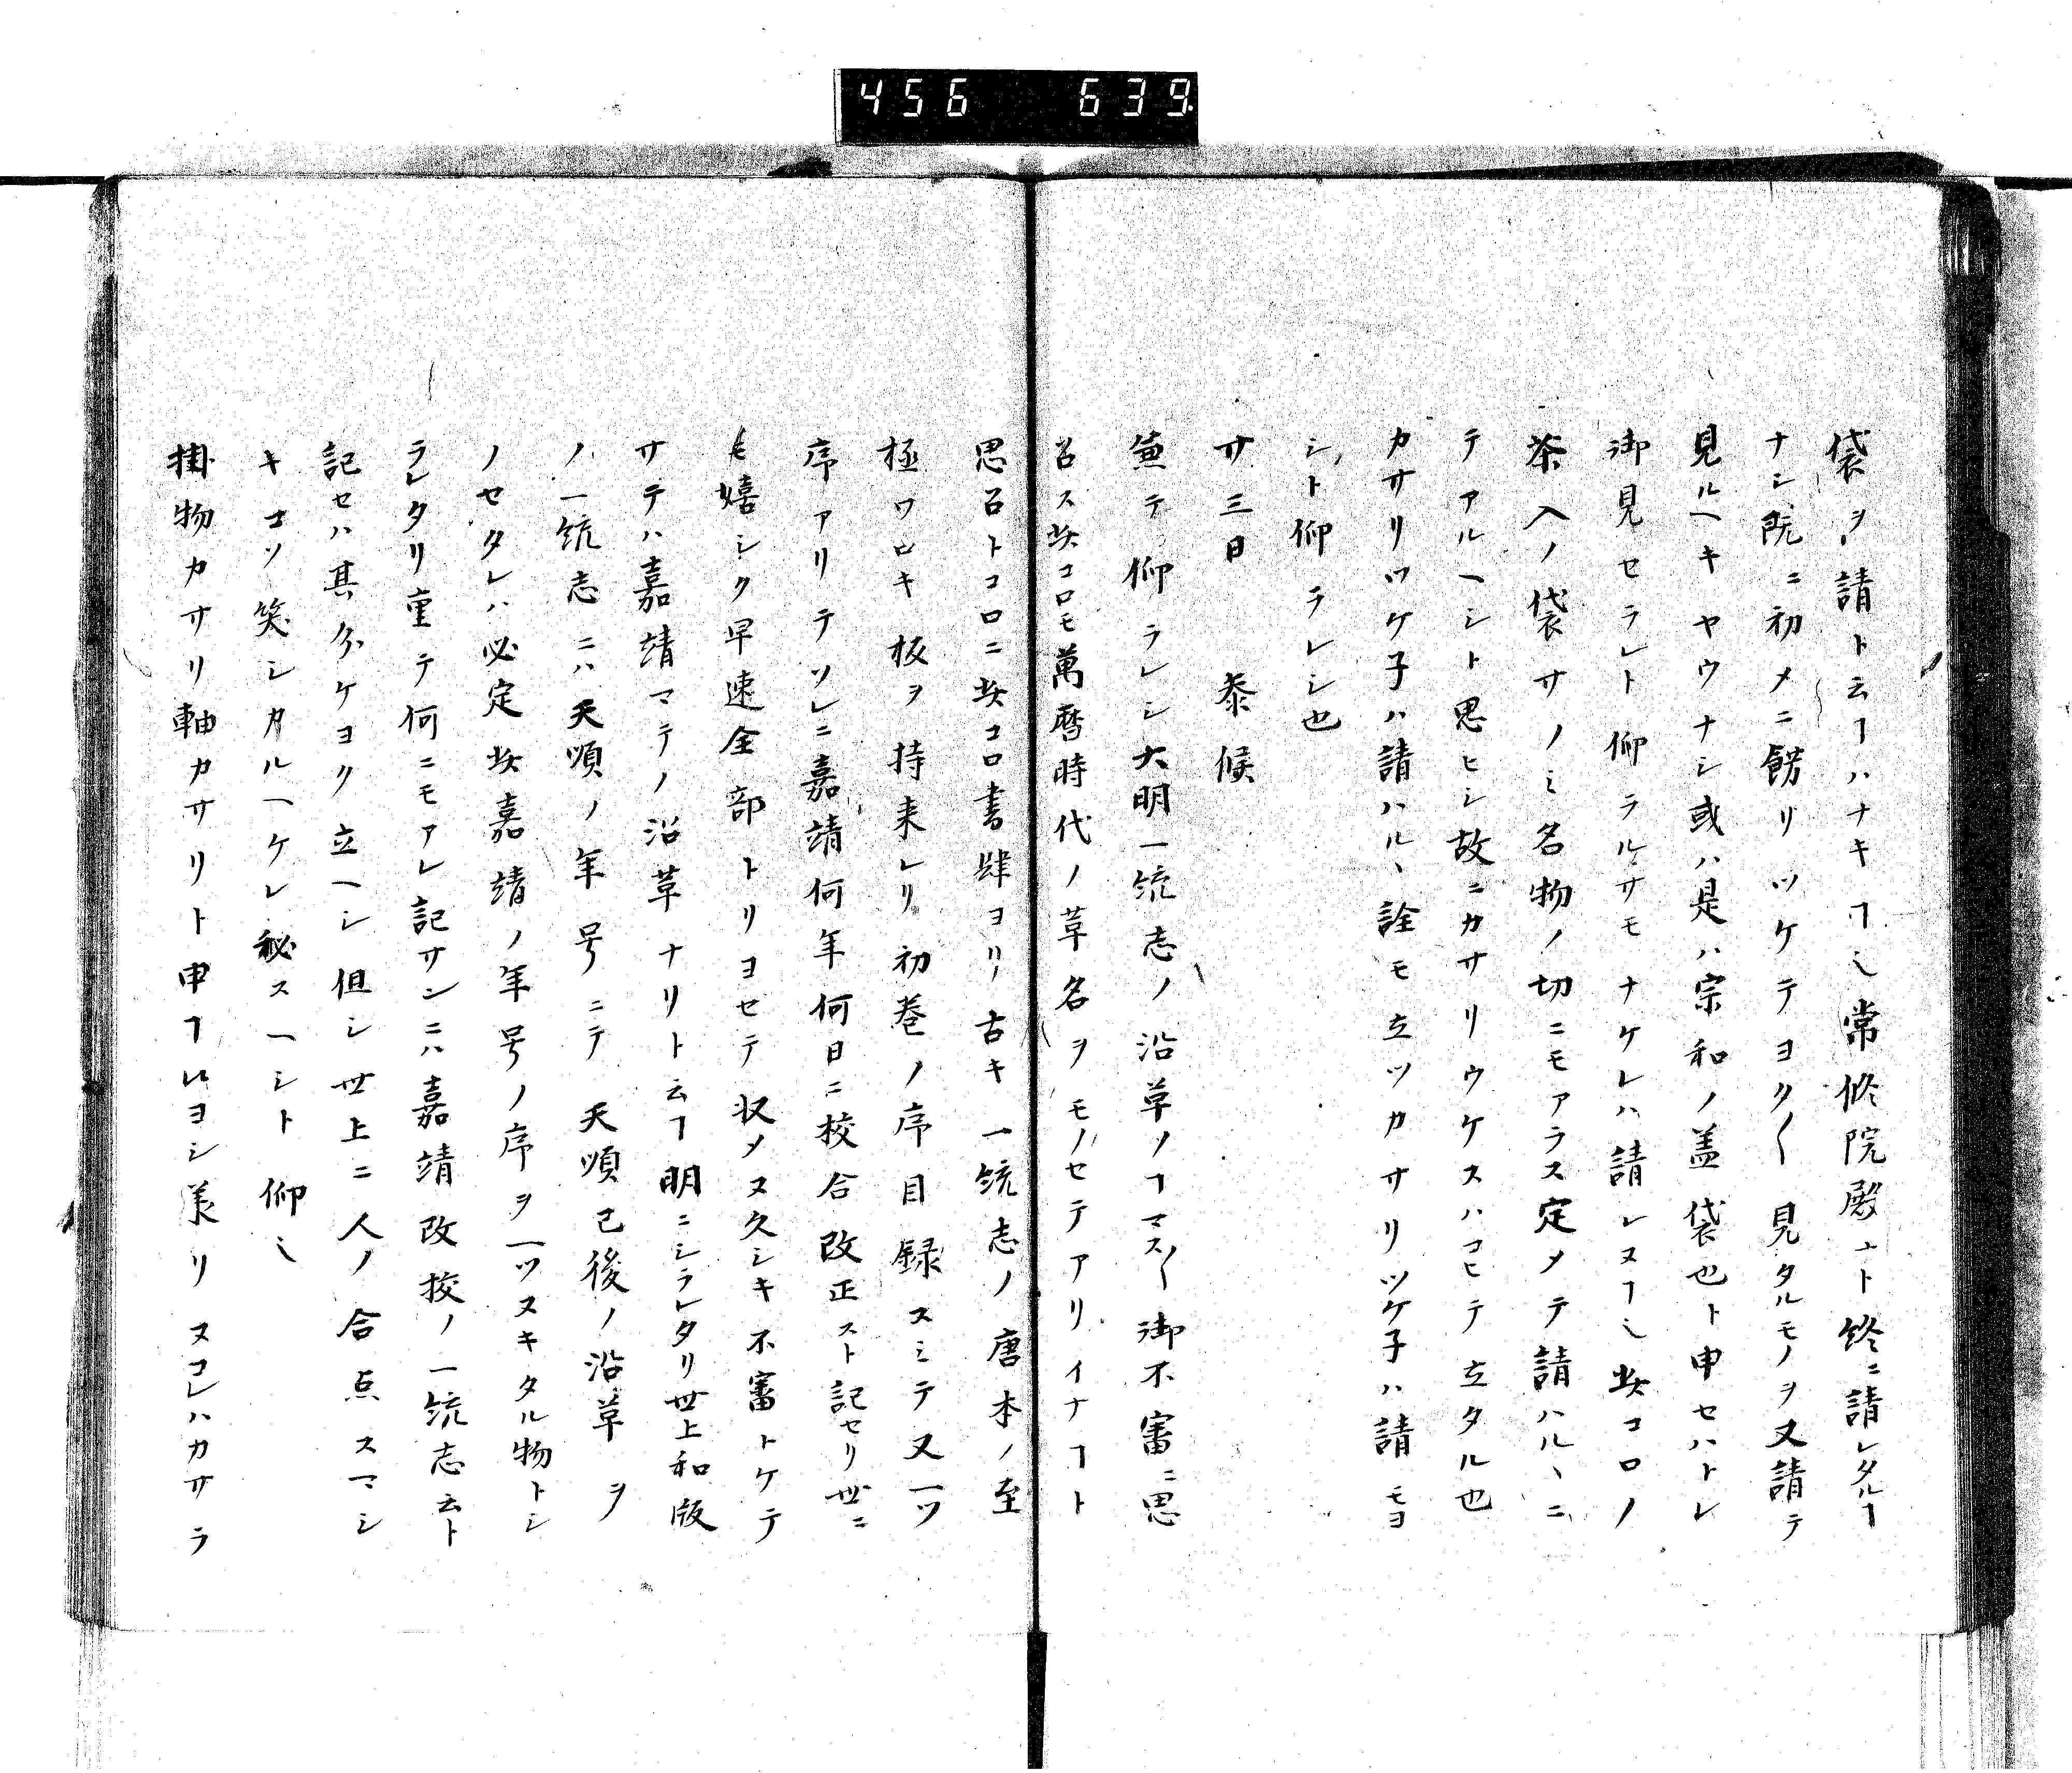 456 639
袋ヲ請ト云ヿハナキヿ也常修院殿ナト終ニ請レタルヿ
ナシ院ニ初メニ餝リツケテヨク〱見タルモノヲ又請テ
見ルヘキヤウナシ或ハ是ハ宗和ノ盖袋也ト申セハトレ
御見セラレト仰ラルサモナケレハ請レヌヿ也此コロノ
茶入ノ袋サノミ名物ノ切ニモアラス定メテ請ハルヽニ
テアルヘシト思ヒシ故ニカサリリウケスハコヒテ立タル也
カサリツケ子ハ請ハルヽ詮モ立ツカサリツケ子ハ請モヨ
シト仰ラレシ也
廿三日 参候
兼テ仰ラレシ大明一統志ノ沿革ノヿマス〱御不審ニ思
召ス此コロモ萬暦時代ノ革名ヲモノセテアリイナヿト
思召トコロニ此コロ書肆ヨリ古キ一統志ノ唐本ノ至
極ワロキ板ヲ持来レリ初巻ノ序目録スミテ又一ツ
序アリテソレニ嘉靖何年何日ニ校合改正スト記セリ世ニ
モ嬉シク早速全部トリヨセテ収メヌ久シキ不審トケテ
サテハ嘉靖マテノ沿革ナリト云ヿ明ニシラレタリ世上和版
ノ一統志ニハ天順ノ年号ニテ天順已後ノ沿革ヲ
ノセタレハ必定此嘉靖ノ年号ノ序ヲ一ツヌキタル物トシ
ラレタリ重テ何ニモアレ記サンニハ嘉靖改挍ノ一統志云ト
記セハ其分ケヨク立ヘシ但シ世上ニ人ノ合点スマシ
キコソ笑シカルヘケレ秘スヘシト仰也
掛物カサリ軸カサリト申ヿハヨシ義リヌコレハカサラ